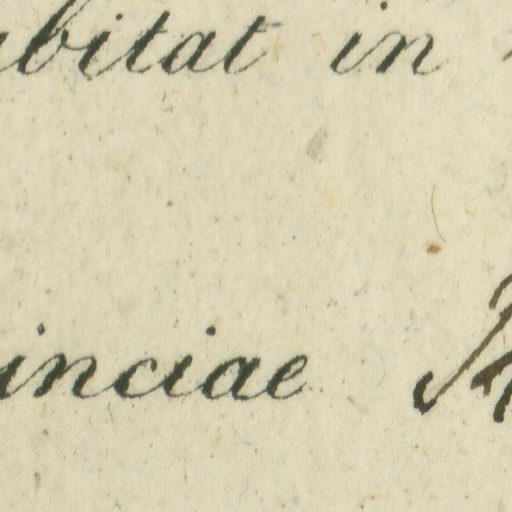 abitat in
inciae